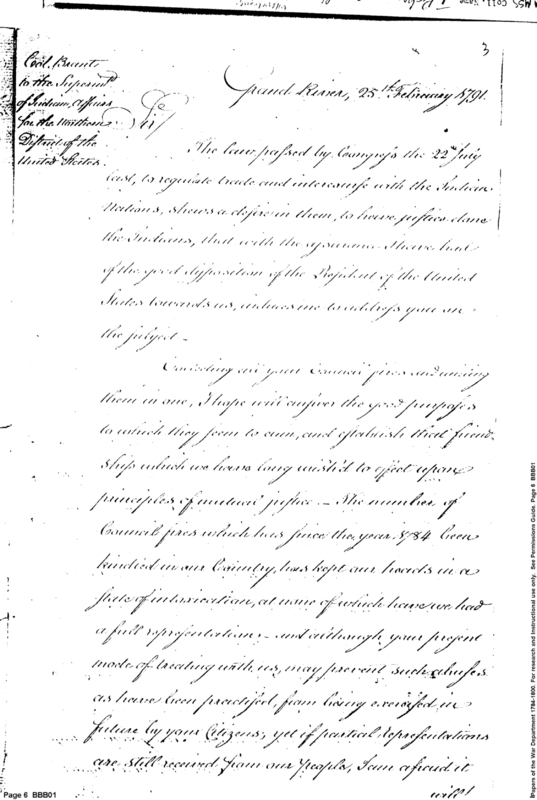 3
Coll. Brants
to the Superint
of Indian Affairs
for the Northern
District of the
United States.
Grand River, 25th February 1791.
Sir/
The law passed by Congress the 22d July
last, to regulate trade and intercourse with the Indian
Nations, shews a desire in them, to have justice done
the Indians, that with the assurance I have had
of the good disposition of the President of the United
States towards us, induces me to address you on
the subject —
all your Council fires and uniting
them in one, I hope will answer the good purposes
to which they seem to aim, and establish that friend-
ship which we have long wish'd to effect upon
principles of mutual justice. — The number of
Council fires which has since the year 1784 been
kindled in our Country, has kept our heads in a
state of intoxication, at none of which have we had
a full representation — and although your present
mode of treating with us, may prevent such abuses
as have been practised, from being exercised in
future by your Citizens, yet if partial Representations
are still received from our peoples, I am afraid it
will
Page 6 BBB01
Papers of the War Department 1784-1800. For research and instructional use only. See Permissions Guide. Page 6 BBB01